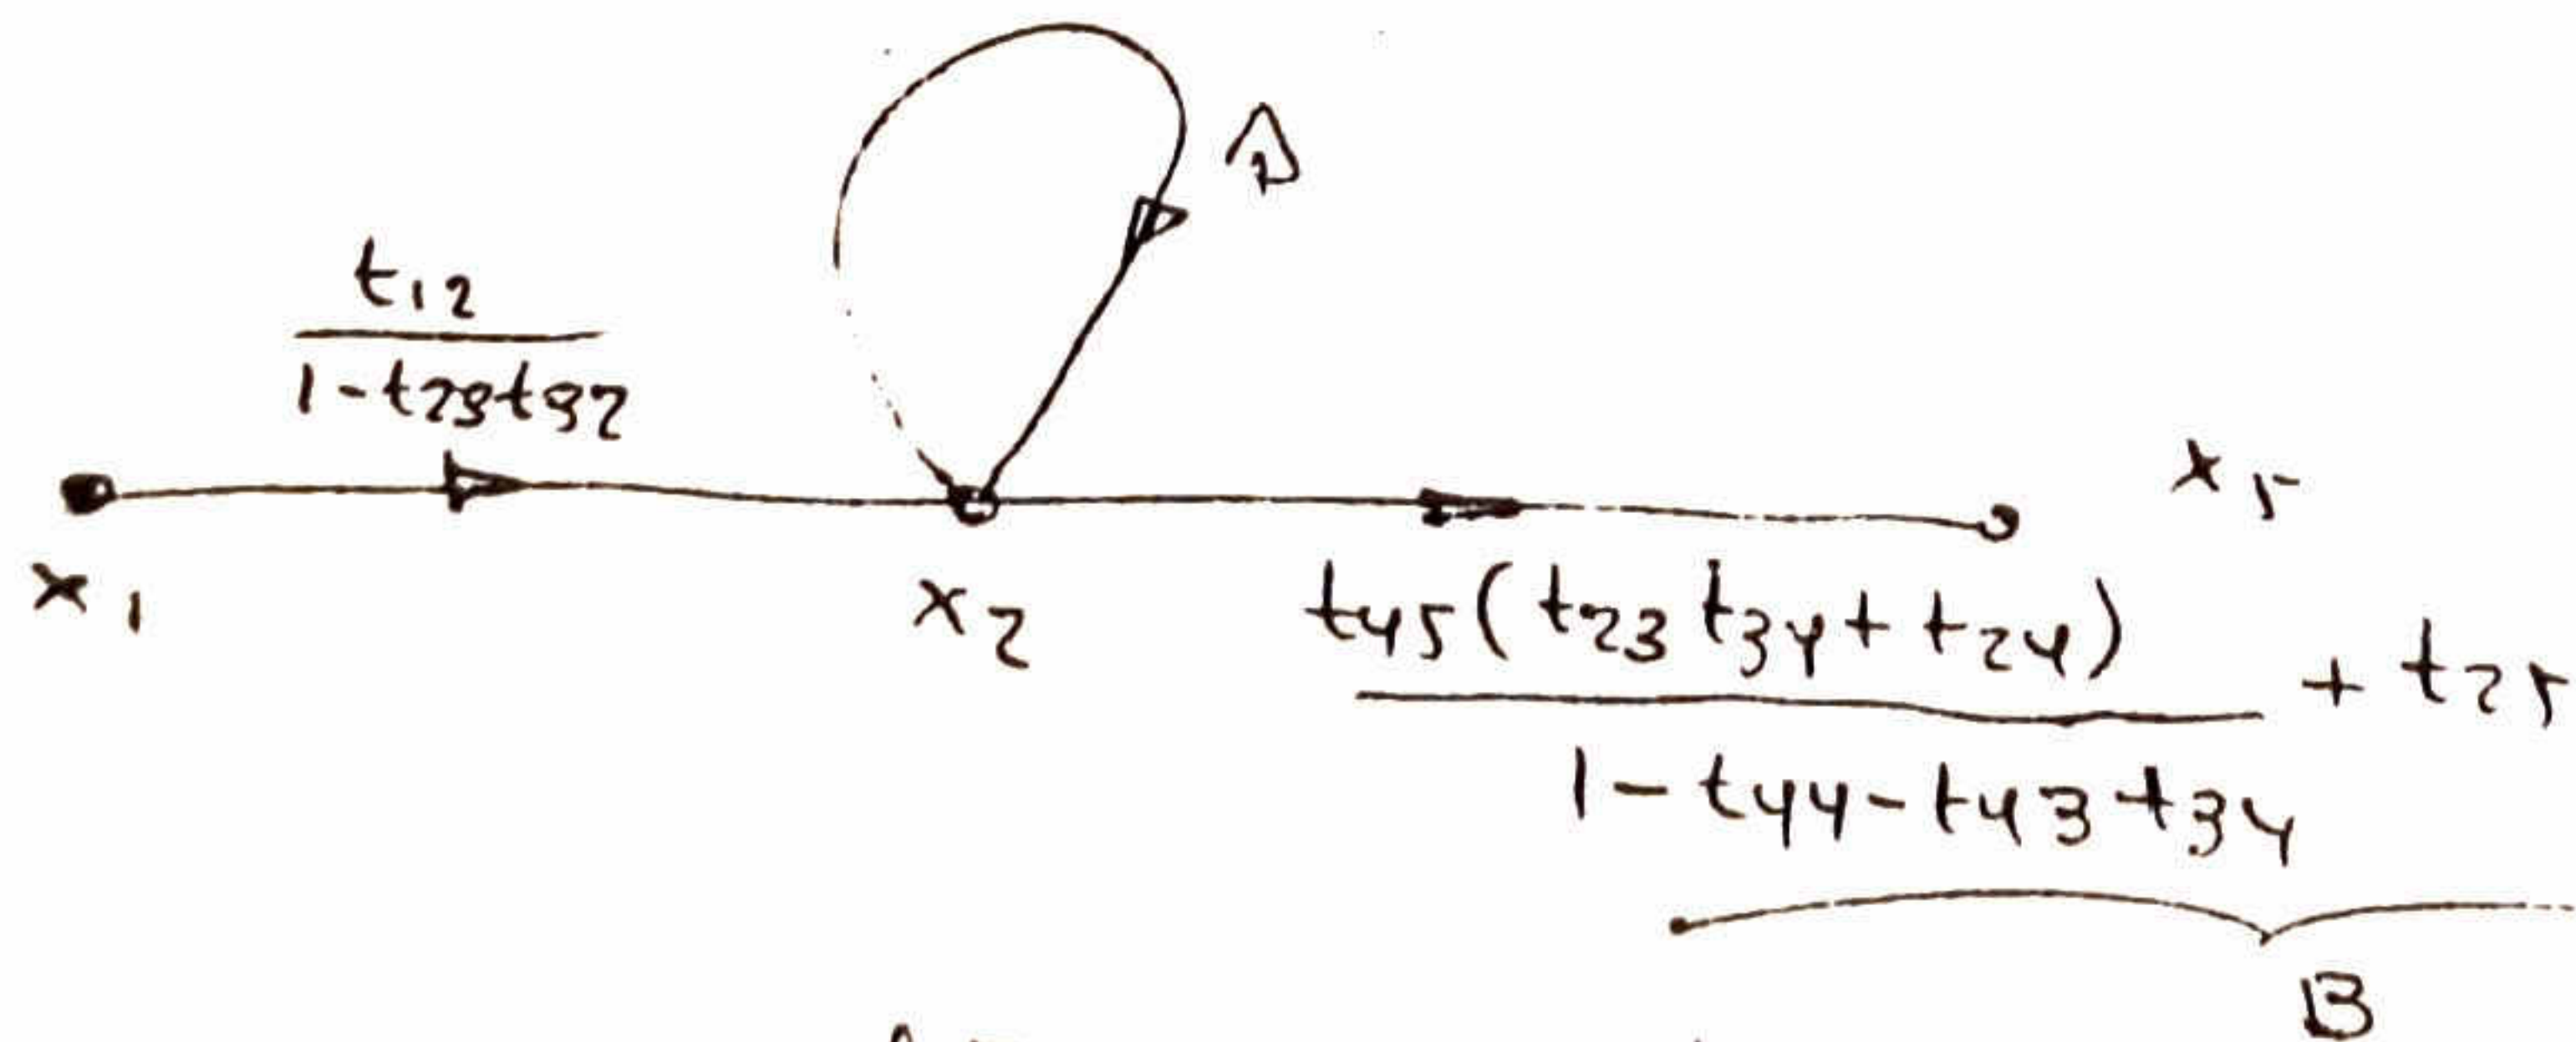 A
t12
1-t23t32
x1
x2
x5
t45(t23t34+t24)
+ t25
1-t44-t43t34
B